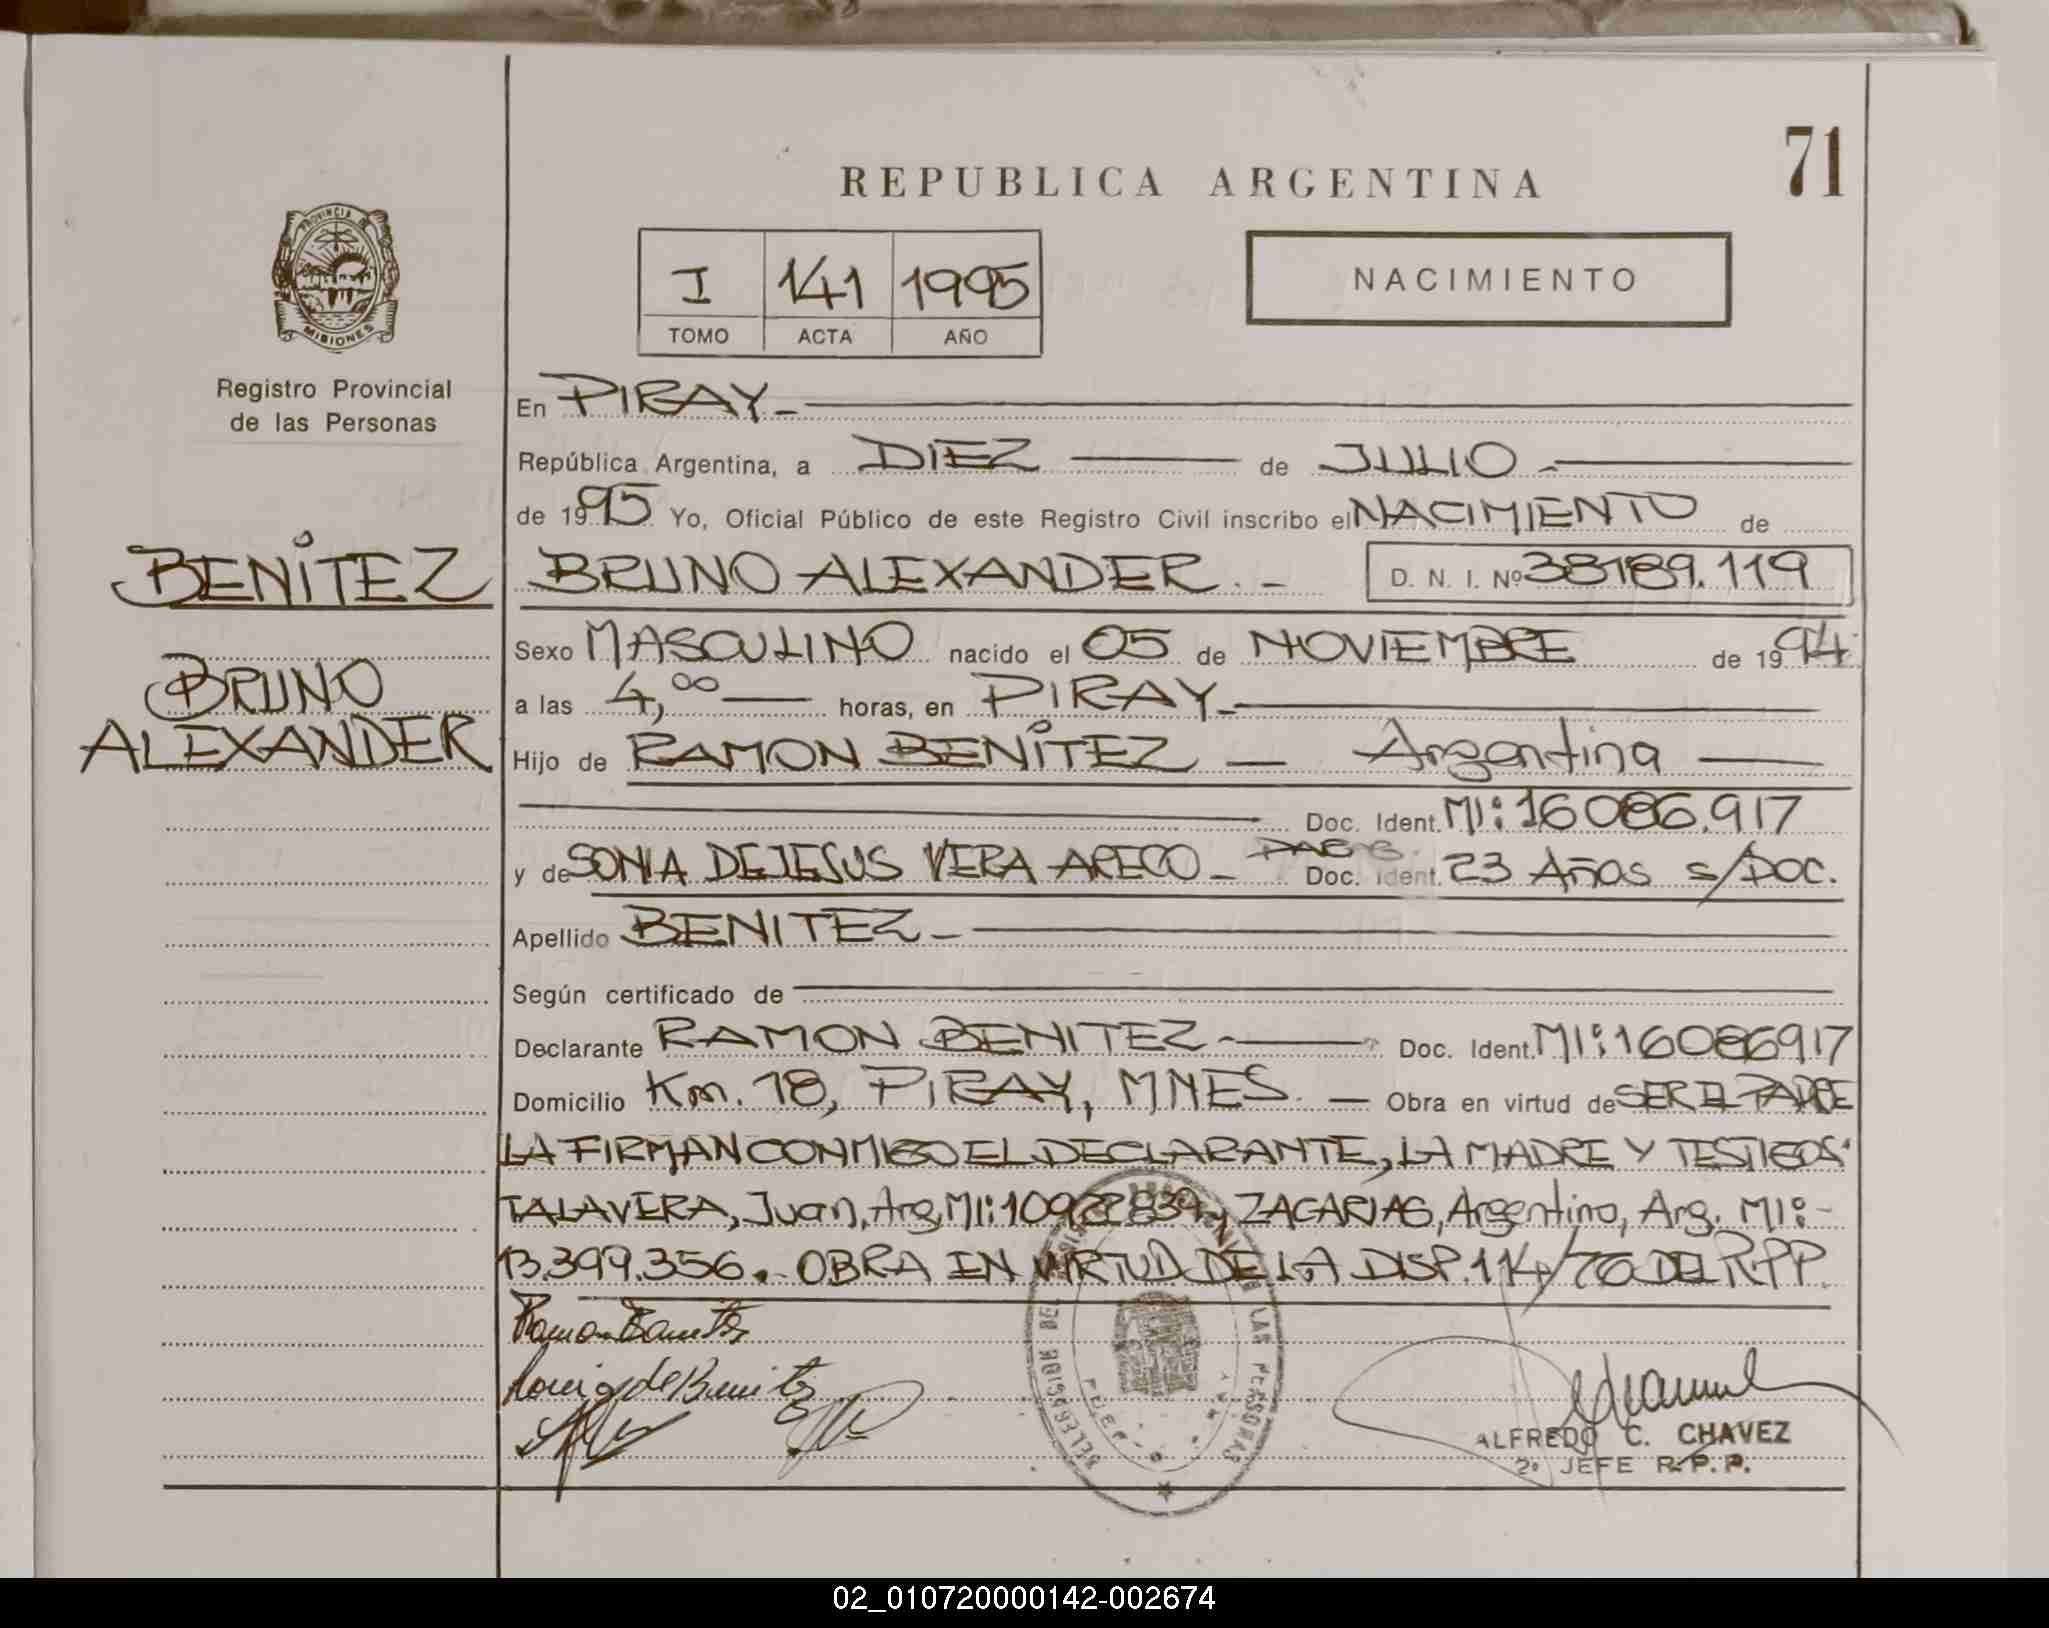 71
REPUBLICA ARGENTINA
PROVINCIA DE
MISIONES
I 141 1995
TOMO ACTA AÑO
NACIMIENTO
Registro Provincial
de las Personas
En PIRAY
República Argentina, a DIEZ de JULIO
de 1995 Yo, Oficial Público de este Registro Civil inscribo el NACIMIENTO de
BENITEZ BRUNO ALEXANDER. - D. N. I. Nº 38189.119
BRUNO
ALEXANDER
Sexo MASCULINO nacido el 05 de NOVIEMBRE de 1994
a las 4,00 horas, en PIRAY
Hijo de RAMON BENITEZ — Argentina
Doc. Ident. MI: 16086.917
y de SONIA DE JESUS VERA ARECO - Doc. Ident. 23 Años s/DOC.
Apellido BENITEZ
Según certificado de
Declarante RAMON BENITEZ Doc. Ident. MI: 16086917
Domicilio Km. 18, PIRAY, MNES. — Obra en virtud de SER EL PADRE
LA FIRMAN CONMIGO EL DECLARANTE, LA MADRE Y TESTIGOS
TALAVERA, Juan, Arg, MI: ZACARIAS, Argentino, Arg. MI: -
13.399.356. - OBRA EN VIRTUD DE LA DISP. 114/76 DEL RPP.
Ramon Benitez
de Benitez
ALFREDO C. CHAVEZ
2º JEFE R.P.P.
02_010720000142-002674